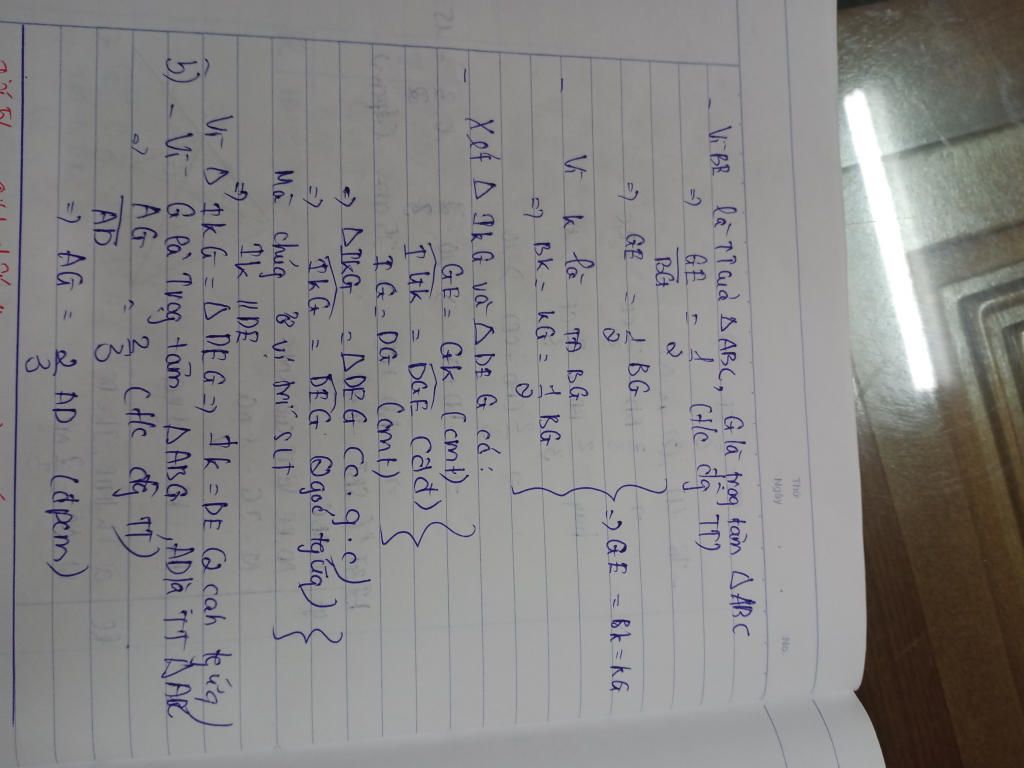 Thứ
Ngày
No.
- Vì BE là TT của Δ ABC, G là trọng tâm Δ ABC
=> GE/BG = 1/2 (t/c đg TT)
=> GE = 1/2 BG
- Vì k là TĐ BG
=> Bk = kG = 1/2 BG
} => GE = Bk = kG
- Xét Δ IkG và Δ DEG có:
GE = Gk (cmt)
IGk = DGE (đđ)
IG = DG (cmt)
=> Δ IkG = Δ DEG (c.g.c)
=> IkG = DEG (2 góc tg ứng)
Mà chúng ở vị trí slt
=> Ik // DE
Vì Δ IkG = Δ DEG => Ik = DE (2 cạnh tg ứng)
b) - Vì G là Trọng tâm Δ ABC, AD là TT Δ ABC
=> AG/AD = 2/3 (t/c đg TT)
=> AG = 2/3 AD (đpcm)